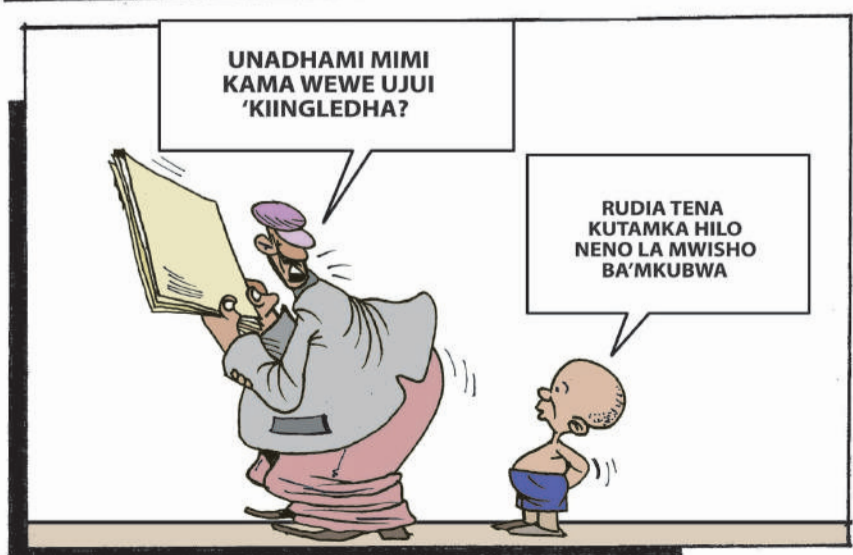 UNADHAMI MIMI
KAMA WEWE UJUI
‘KIINGLEDHA?
RUDIA TENA
KUTAMKA HILO
NENO LA MWISHO
BA’MKUBWA